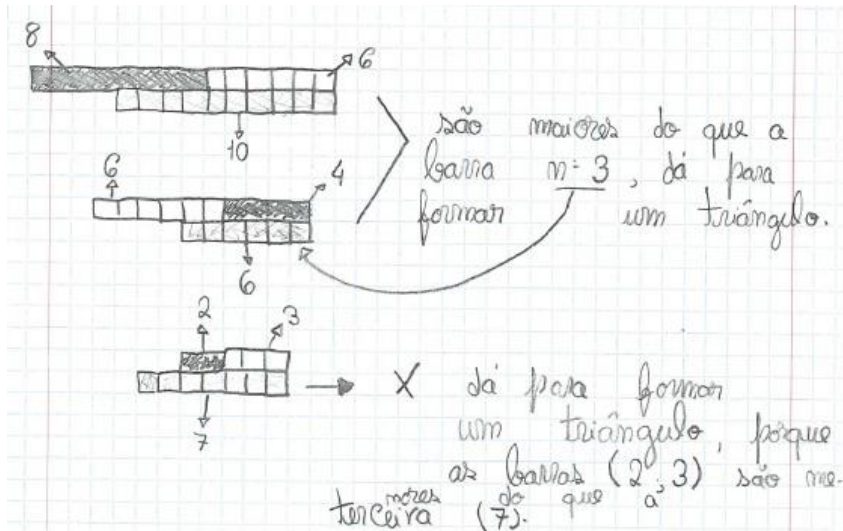 8
6
10
são maiores do que a
barra nº 3, dá para
formar um triângulo.
6
4
6
2
3
7
X dá para formar
um triângulo, porque
as barras (2, 3) são me-
nores do que a
terceira (7).